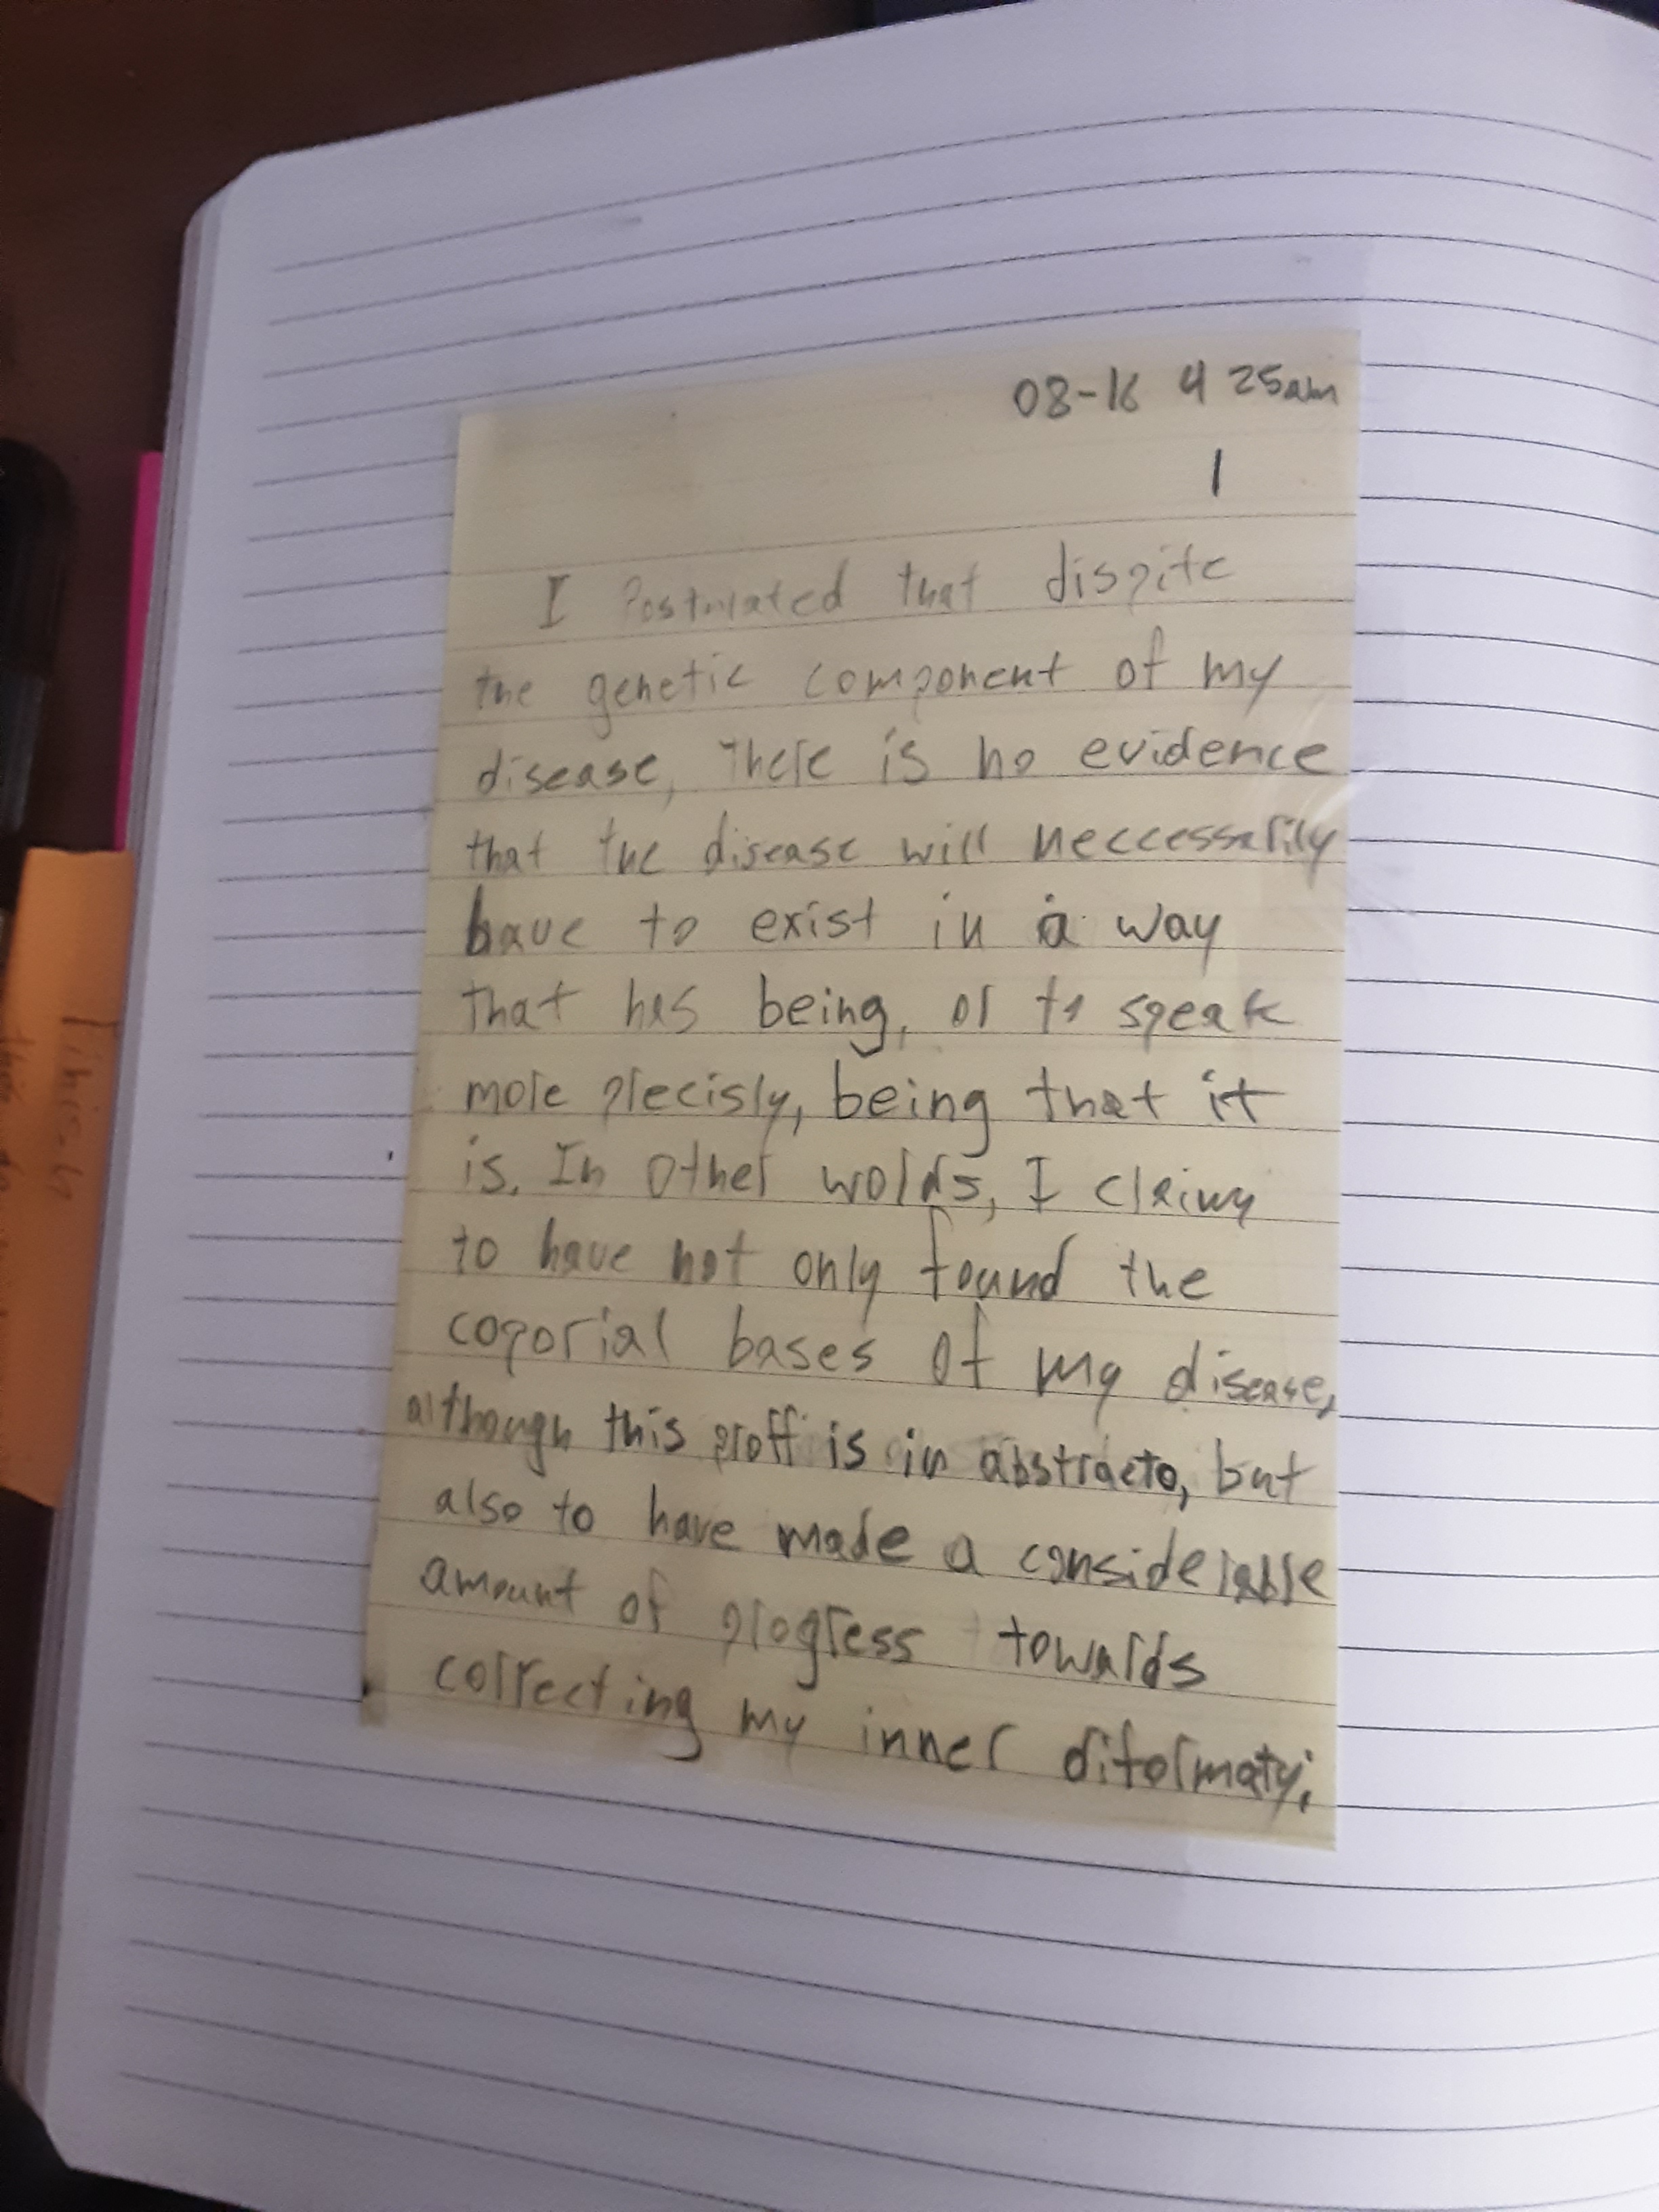 08-16 4 25am
1
I Postulated that dispite
the genetic component of my
disease, There is no evidence
that the disease will neccessarily
have to exist in a way
that has being, or to speak
more precisly, being that it
is. In other words, I claim
to have not only found the
coporial bases of my disease,
although this proff is in abstracto, but
also to have made a considerable
amount of progress towards
correcting my inner diformaty;